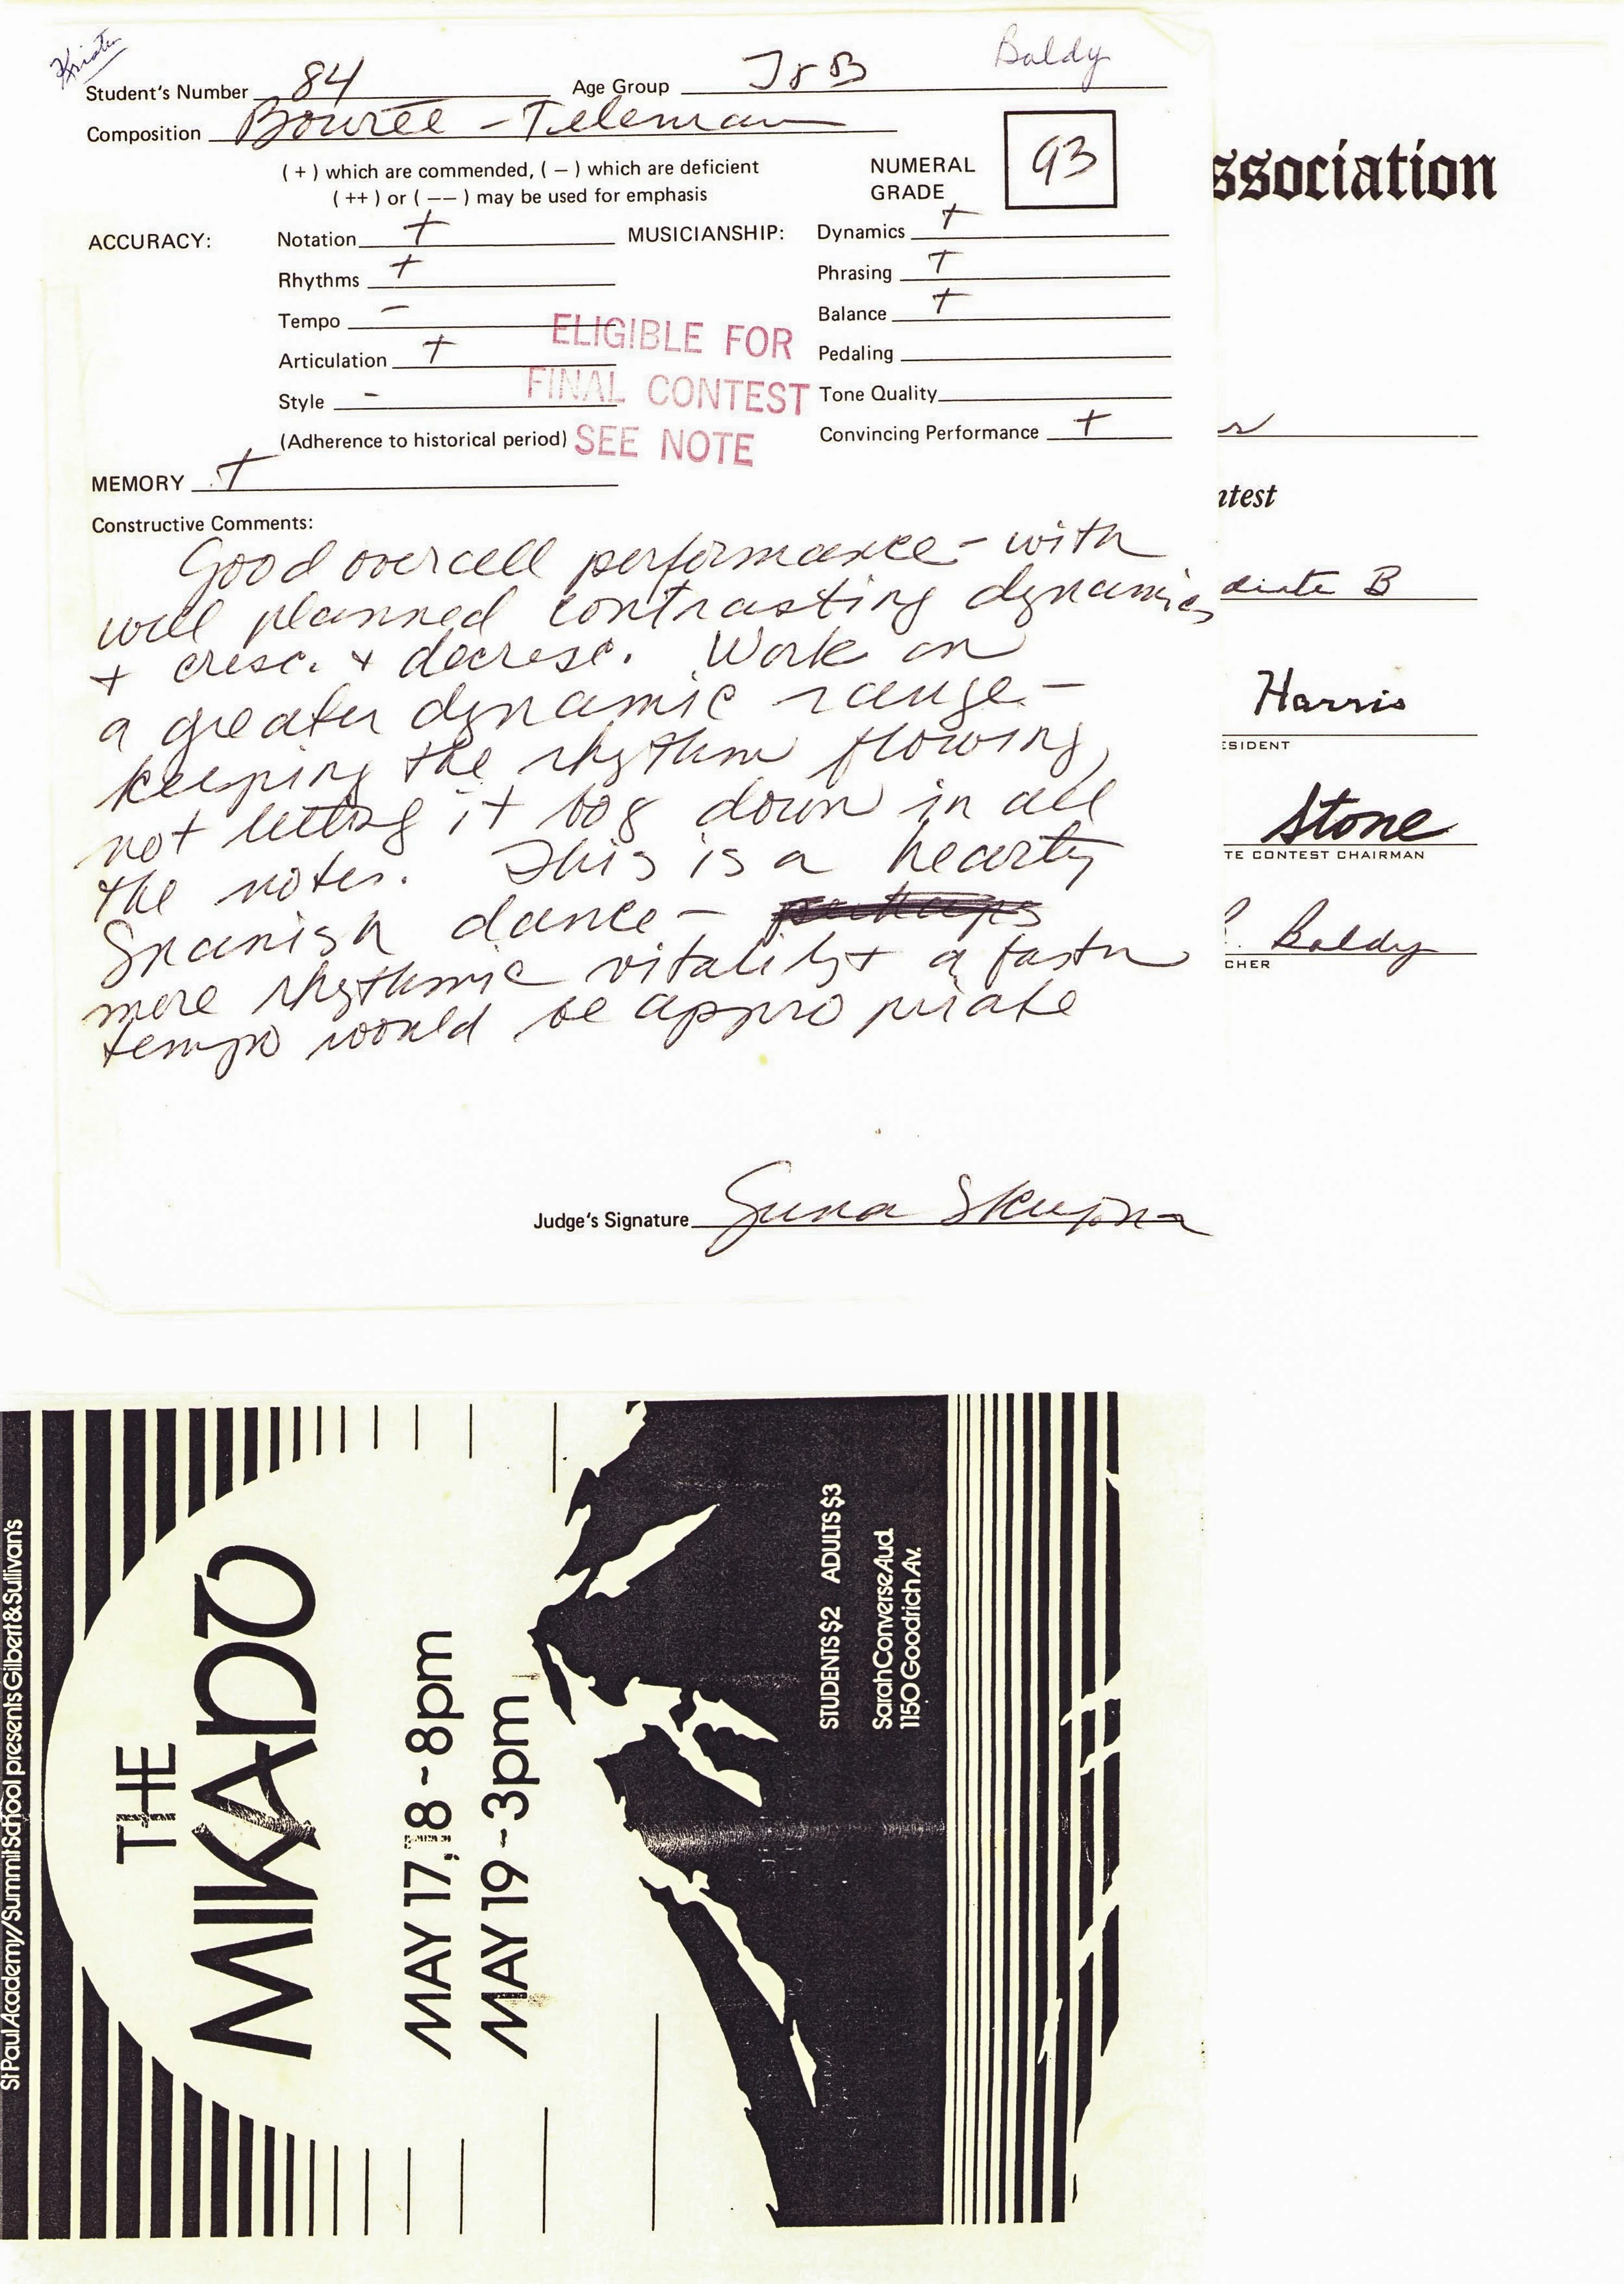 Kristen
Baldy
Student's Number 84 Age Group J r B
Composition Bourée - Teleman
(+) which are commended, (−) which are deficient
(++) or (−−) may be used for emphasis
NUMERAL
GRADE
93
ACCURACY:
Notation +
Rhythms +
Tempo -
Articulation +
Style -
(Adherence to historical period)
MUSICIANSHIP:
Dynamics +
Phrasing +
Balance +
Pedaling
Tone Quality
Convincing Performance +
ELIGIBLE FOR
FINAL CONTEST
SEE NOTE
MEMORY +
Constructive Comments:
Good overall performance - with
well planned contrasting dynamics
+ cresc. + decresc. Work on
a greater dynamic range -
keeping the rhythm flowing,
not letting it bog down in all
the notes. This is a hearty
Spanish dance -
more rhythmic vitality + a faster
tempo would be appropriate
Judge's Signature
ssociation
ntest
diate B
Harris
ESIDENT
Stone
TE CONTEST CHAIRMAN
Baldy
CHER
St Paul Academy/Summit School presents Gilbert & Sullivan's
THE
MIKADO
MAY 17,18 - 8pm
MAY 19 - 3pm
STUDENTS $2 ADULTS $3
Sarah Converse Aud.
1150 Goodrich Av.